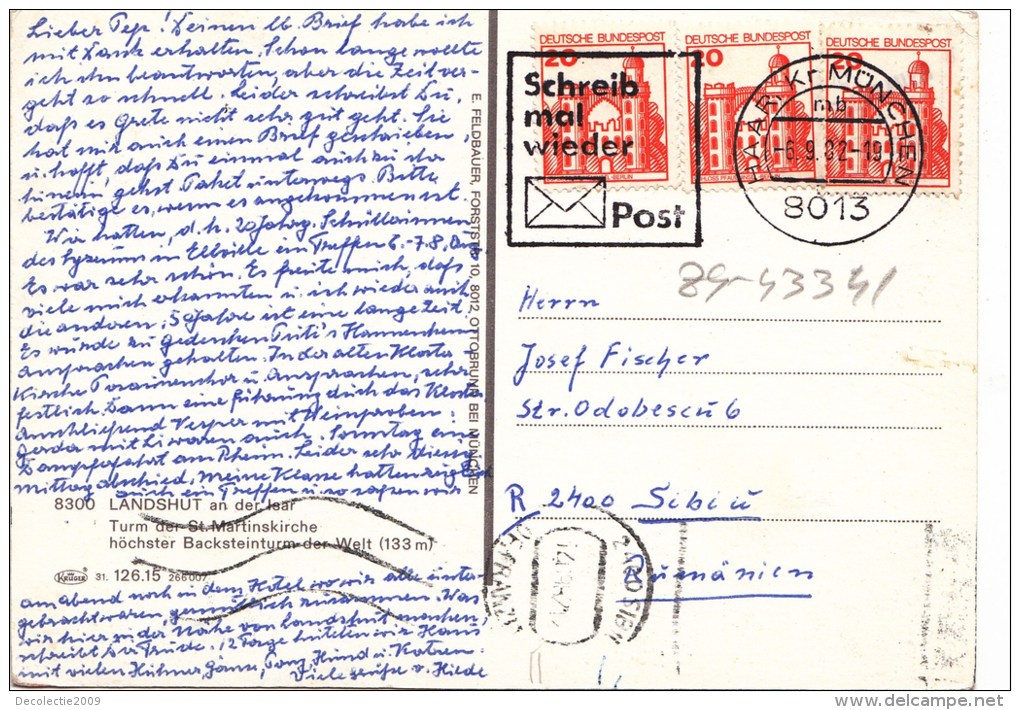 Lieber Pep! Deinen lb. Brief habe ich
mit Dank erhalten. Schon lange wollte
ich ihn beantworten, aber die Zeit ver-
geht so schnell. Leider schreibst Du,
daß es Grete nicht sehr gut geht. Sie
hat mir auch einen Brief geschrieben
u. hofft, daß Du einmal auch zu ihr
hinein gehst. Paket unterwegs. Bitte
bestätige es, wenn es angekommen ist.
Wir hatten, d. h. Schülerinnen
des Lyzeums in Eltville ein Treffen 6.-7.8.
Es war sehr schön. Es freute mich, daß
viele mich erkannten u. ich wieder auch
die anderen, 50 Jahre ist eine lange Zeit.
Es wurde zu gedenken
Ansprachen gehalten. In der alten Kloster-
Kirche Posaunenchor u. Ansprachen, sehr
festlich. Dann eine Führung durch das Kloster
Anschließend Vesper mit Weinproben.
Gerda mit Li waren auch. Sonntag eine
Dampferfahrt am Rhein. Leider
mittag Abschied, meine Klasse hatten
auch ein Treffen u. so saßen wir
8300 LANDSHUT an der Isar
Turm der St. Martinskirche
höchster Backsteinturm der Welt (133 m)
Krüger 31. 126.15 266007
am Abend noch in dem Hotel wo wir alle unter-
gebracht waren, gemütlich zusammen. Was
wir hier in der Nähe von Landshut machen,
schreibt Dir Trude. 12 Tage hüteten wir Haus
mit vielen Hühner, Gänse, Pony, Hund u. Katzen.
Viele Grüße v. Hilde
E. FELDBAUER, FORSTSTR. 10, 8012 OTTOBRUNN BEI MÜNCHEN
DEUTSCHE BUNDESPOST
20
DEUTSCHE BUNDESPOST
20
DEUTSCHE BUNDESPOST
20
Schreib
mal
wieder
Post
HAAR, Kr MÜNCHEN
mb
-6.9.82-19
8013
89-43341
Herrn
Josef Fischer
Str. Odobescu 6
R 2400 Sibiu
Rumänien
2400 SIBIU
Decolectie2009
delcampe.net